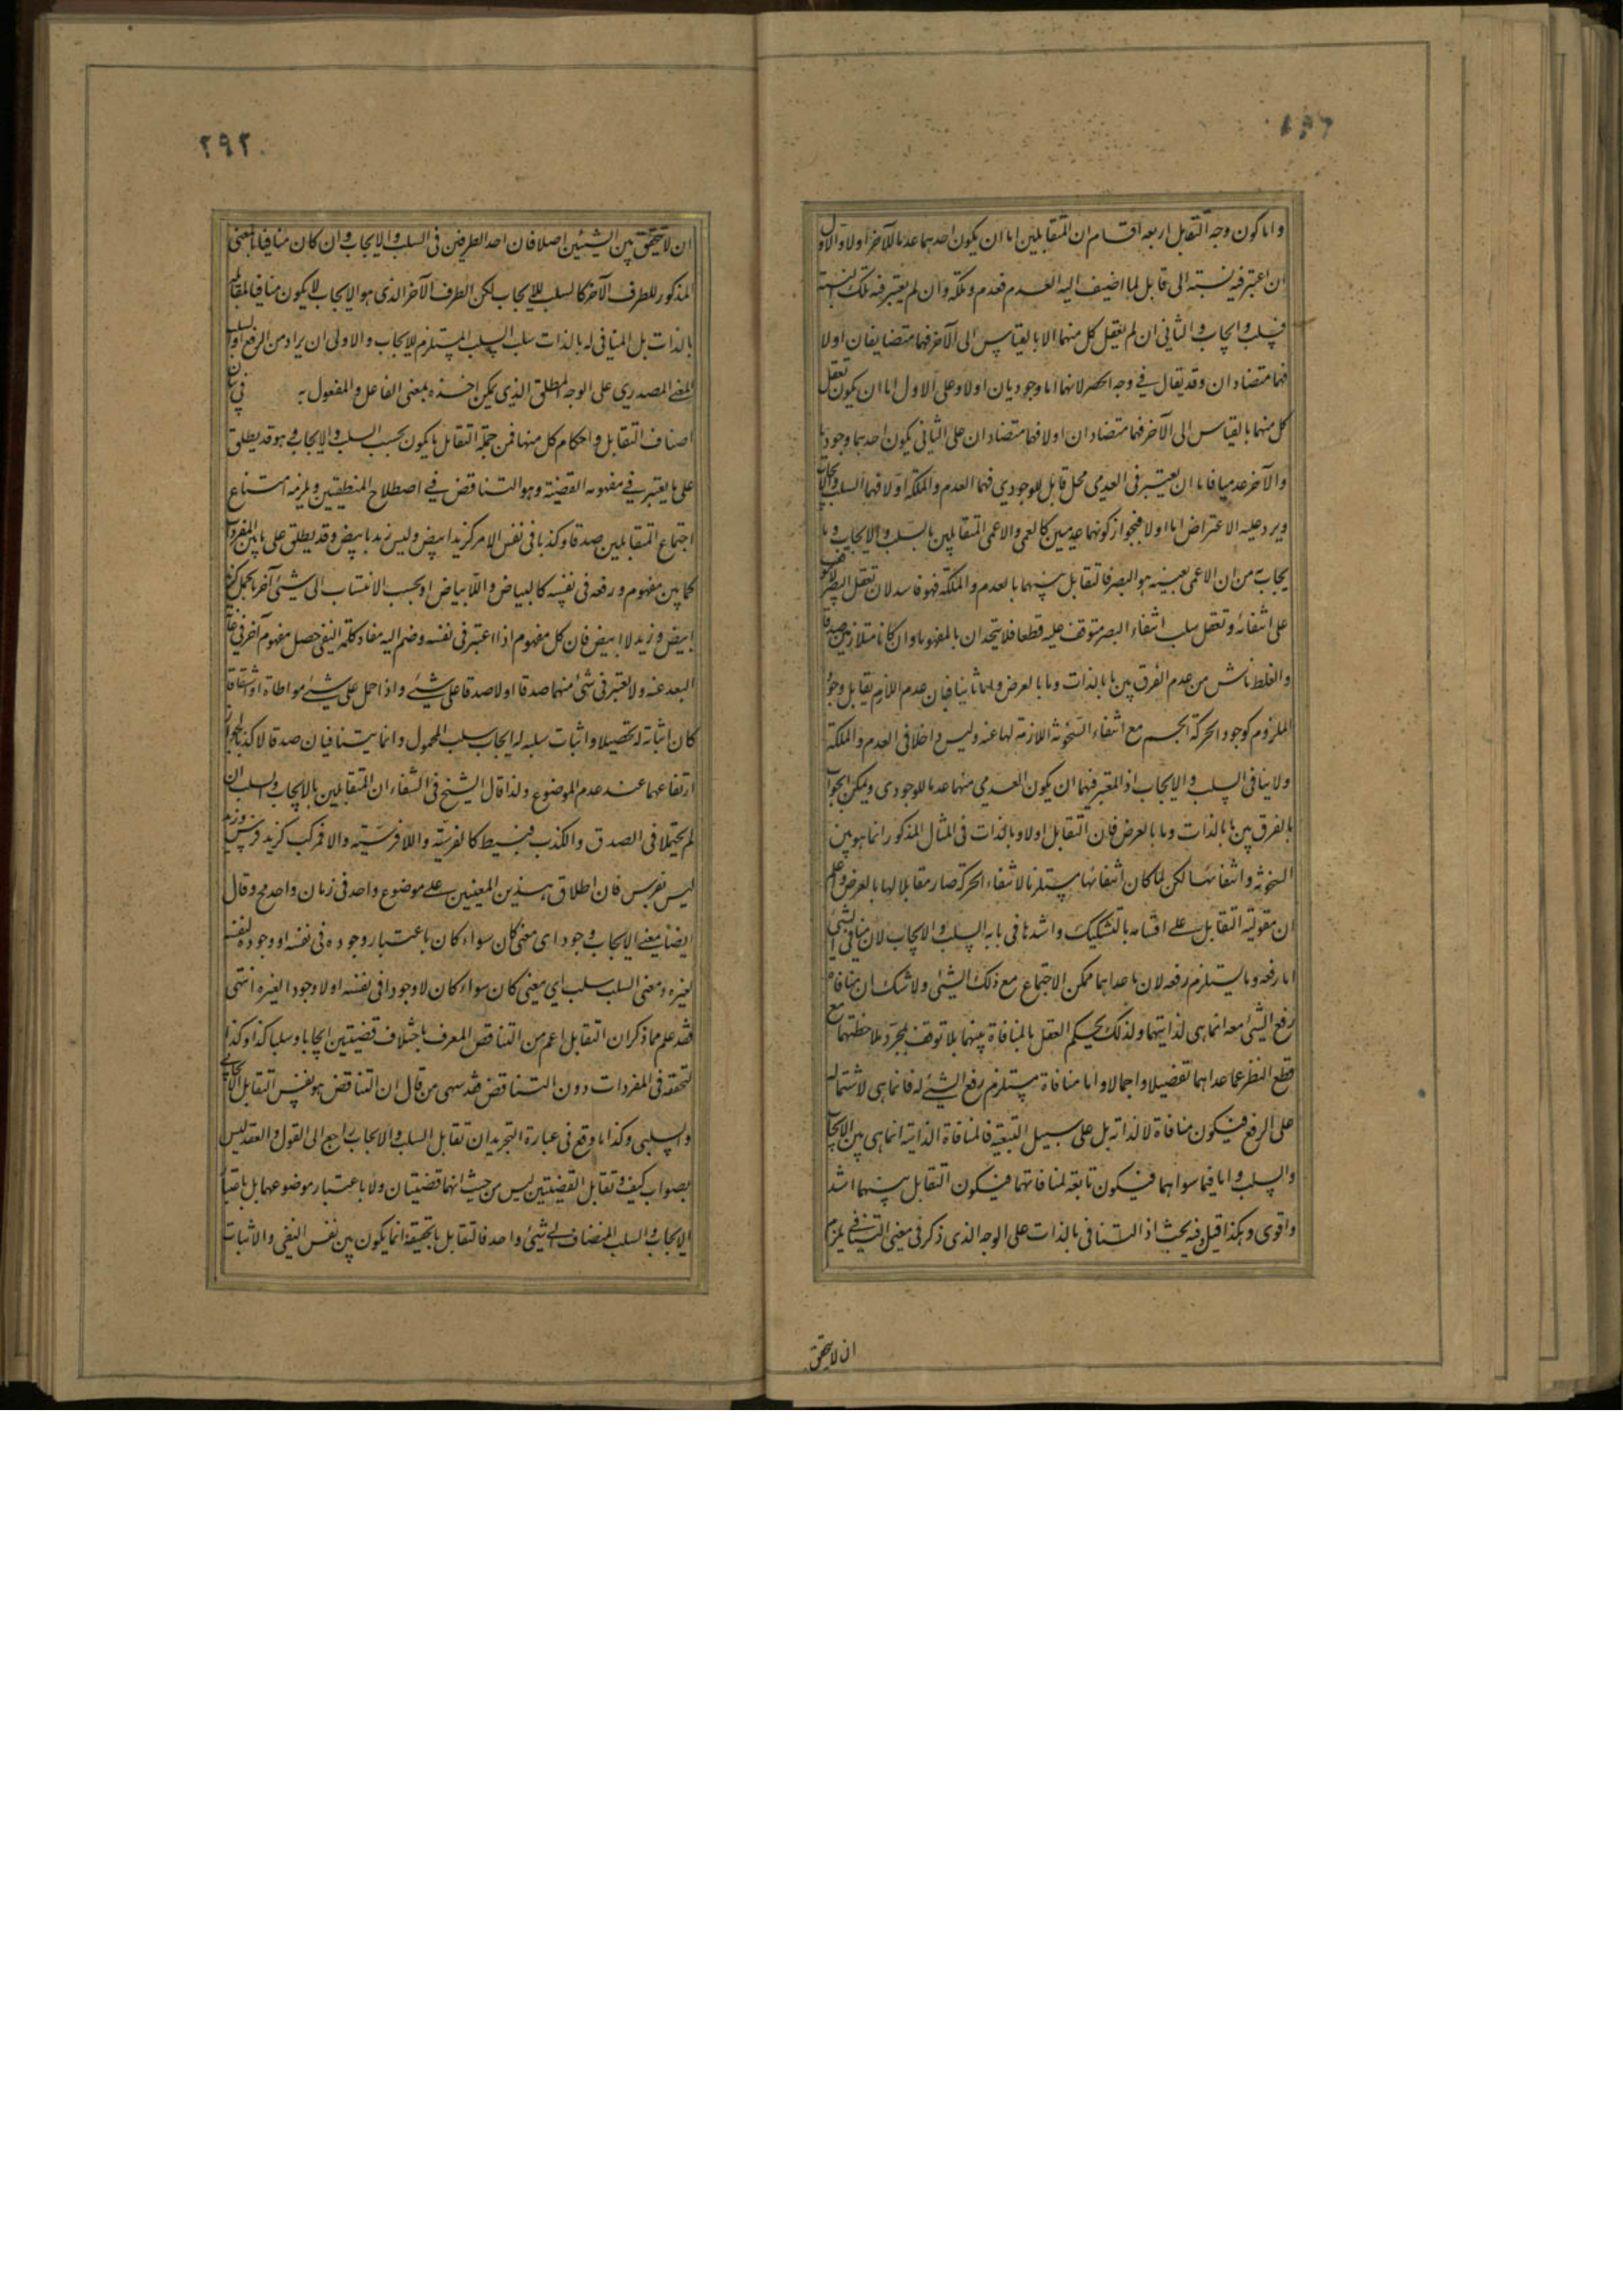 واما كون وجه التقابل اربعة اقسام ان المتقابلين اما ان يكون احدهما عدما للآخر اولا والاول
ان اعتبر فيه نسبته الى قابل لما اضيف اليه العدم فعدم وملكة وان لم يعتبر فيه تلك النسبة
فسلب وايجاب والثاني ان لم يعقل كل منهما الا بالقياس الى الآخر فهما متضايفان اولا
فهما متضادان وقد يقال في وجه الحصر لانهما اما وجوديان اولا وعلى الاول اما ان يكون تعقل
كل منهما بالقياس الى الآخر فهما متضادان اولا فهما متضادان على الثاني يكون احدهما وجوديا
والآخر عدميا فاما ان يعتبر في العدمي محل قابل للوجودي فهما العدم والملكة اولا فهما السلب والايجاب
ويرد عليه الاعتراض اما اولا فبجواز كونهما عدميين كالعمى والاعمى المتقابلين بالسلب والايجاب وما
يجاب من ان الاعمى بعينه هو البصر فالتقابل بينهما بالعدم والملكة فهو فاسد لان تعقل البصر
على انتفائه وتعقل سلب انتفاء البصر متوقف عليه قطعا فلا يتحدان بالمفهوم وان كانا متلازمين صدقا
والغلط ناش من عدم الفرق بين ما بالذات وما بالعرض واما ثانيا فبان عدم اللازم يقابل وجود
الملزوم كوجود الحركة الجسم مع انتفاء السخونة اللازمة لها عنه وليس داخلا في العدم والملكة
ولا ينافي السلب والايجاب اذ المعتبر فيهما ان يكون العدمي منهما عدما للوجودي ويمكن الجواب
بالفرق بين ما بالذات وما بالعرض فان التقابل اولا وبالذات في المثال المذكور انما هو بين
السخونة وانتفائها لكن لما كان انتفائها مستلزما لانتفاء الحركة صار مقابلا لها بالعرض واعلم
ان مقولية التقابل على اقسامه بالتشكيك واشدها في بابه السلب والايجاب لان منافي الشئ
اما رفعه وما يستلزم رفعه لان ما عداهما ممكن الاجتماع مع ذلك الشئ ولا شك ان منافاة
رفع الشئ معه انما هي لذاتيهما ولذلك يحكم العقل بالمنافاة بينهما بلا توقف بمجرد ملاحظتهما مع
قطع النظر عما عداهما تفصيلا واجمالا واما منافاة مستلزم رفع الشئ له فانما هي لاشتماله
على الرفع فيكون منافاة لا لذاته بل على سبيل التبعية فالمنافاة الذاتية انما هي بين الايجاب
والسلب واما فيما سواهما فيكون تابعة لمنافاتهما فيكون التقابل بينهما اشد
واقوى وهكذا قيل وفيه بحث اذ التنافي بالذات على الوجه الذي ذكر في معنى التنافي يلزم
ان لا يتحقق
٢٩٢
ان لا يتحقق بين الشيئين اصلا فان احد الطرفين في السلب والايجاب وان كان منافيا بالمعنى
المذكور للطرف الآخر كالسلب للايجاب لكن الطرف الآخر الذي هو الايجاب لا يكون منافيا لمقابله
بالذات بل المنافي له بالذات سلب السلب المستلزم للايجاب والاولى ان يراد من الرفع او السلب
المعنى المصدري على الوجه المطلق الذي يمكن اخذه بمعنى الفاعل والمفعول به في بيان
اصناف التقابل واحكام كل منها فمن جملة التقابل ما يكون بحسب السلب والايجاب وهو قد يطلق
على ما يعتبر في مفهومه القضية وهو التناقض في اصطلاح المنطقيين ويلزمه امتناع
اجتماع المتقابلين صدقا وكذبا في نفس الامر كزيد ابيض وليس زيد بابيض وقد يطلق على ما بين المفردات
كما بين مفهوم ورفعه في نفسه كالبياض واللابياض او بحسب الانتساب الى شئ آخر بالحمل كزيد
ابيض وزيد لا ابيض فان كل مفهوم اذا اعتبر في نفسه وضم اليه مفاد كلمة النفي حصل مفهوم آخر في غاية
البعد عنه ولا يعتبر في شئ منهما صدقا اولا صدقا على شئ واذا حمل على شئ مواطاة او اشتقاقا
كان اثباته له تحصيلا واثبات سلبه له ايجاب سلب المحمول وانما يتنافيان صدقا لا كذبا لجواز
ارتفاعهما عند عدم الموضوع ولذا قال الشيخ في الشفاء ان المتقابلين بالايجاب والسلب ان
لم يحتملا في الصدق والكذب فبسيط كالفرسية واللافرسية والا فمركب كزيد فرس وزيد
ليس بفرس فان اطلاق هذين المعنيين على موضوع واحد في زمان واحد مح وقال
ايضا معنى الايجاب وجود اى معنى كان سواء كان باعتبار وجوده في نفسه او وجوده لنفسه
لغيره ومعنى السلب سلب اي معنى كان سواء كان لا وجودا في نفسه اولا وجودا لغيره انتهى
فقد علم مما ذكر ان التقابل اعم من التناقض المعرف باختلاف قضيتين ايجابا وسلبا كذا وكذا
لتحققه في المفردات دون التناقض فقد سهى من قال ان التناقض هو نفس التقابل الايجابي
والسلبي وكذا ما وقع في عبارة التجريد ان تقابل السلب والايجاب راجع الى القول والعقد ليس
بصواب كيف وتقابل القضيتين ليس من حيث انهما قضيتان ولا باعتبار موضوعهما بل باعتبار
الايجاب والسلب المضاف الى شئ واحد فالتقابل بالحقيقة انما يكون بين نفس النفي والاثبات